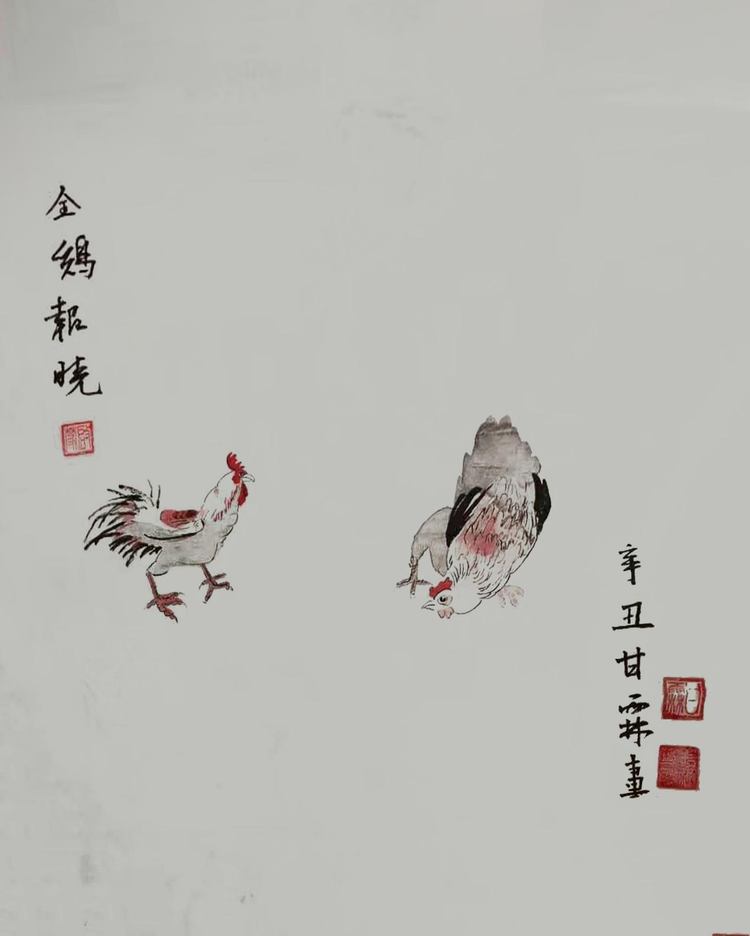 金鷄報晓
辛丑甘霖畫